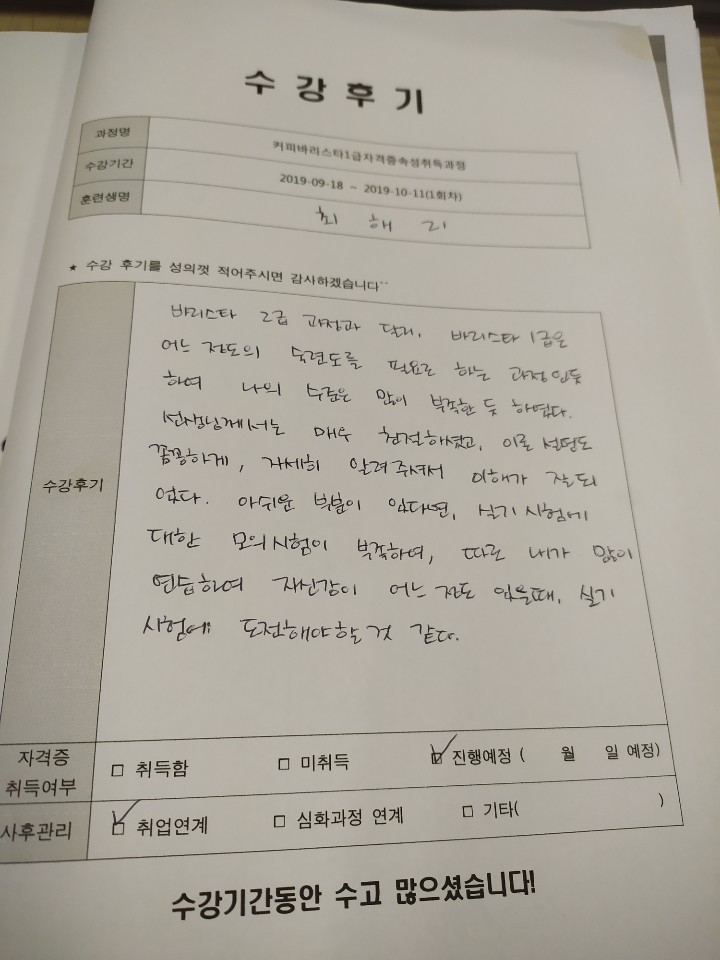 수강후기
과정명 커피바리스타1급자격증속성취득과정
수강기간 2019-09-18 ~ 2019-10-11(1회차)
훈련생명 최해리
★ 수강 후기를 성의껏 적어주시면 감사하겠습니다^^
수강후기
바리스타 2급 과정과 달리, 바리스타 1급은
어느 정도의 숙련도를 필요로 하는 과정인듯
하여 나의 수준은 많이 부족한 듯 하였다.
선생님께서는 매우 친절하셨고, 이론 설명도
꼼꼼하게, 자세히 알려주셔서 이해가 잘되
었다. 아쉬운 부분이 있다면, 실기시험에
대한 모의시험이 부족하여, 따로 내가 많이
연습하여 자신감이 어느 정도 있을때, 실기
시험에 도전해야할 것 같다.
자격증 취득여부 □ 취득함 □ 미취득 ☑ 진행예정 ( 월 일 예정)
사후관리 ☑ 취업연계 □ 심화과정 연계 □ 기타( )
수강기간동안 수고 많으셨습니다!